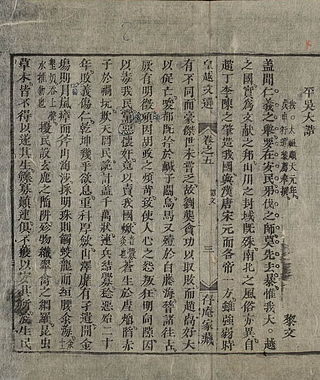 平吳大誥
黎文
蓋聞仁義之舉要在安民弔伐之師莫先去暴惟我大越
之國實為文献之邦山川之封域既殊南北之風俗亦異自
趙丁李陳之肇造我國與漢唐宋元而各帝一方雖強弱時
皇越文選 卷之五 誥文 三 存庵家藏
有不同而豪傑世未嘗乏故劉龑貪功以取敗而趙卨好大
以促亡唆都既擒於鹹子關烏馬又殪於白藤海嘗諸徃古
厥有明徵頃因胡政之煩苛致使人心之怨叛狂明伺隙因
以毒我民偽黨懷奸竟以賣我國焮蒼生於虐焰陷赤
子於禍坑欺天罔民詭計蓋千萬狀連兵結釁稔惡殆二十
年敗義傷仁乾坤幾乎欲息重科厚歛山澤靡有孑遺開金
塲則冐嵐瘴而斧山淘沙採明珠則觸蛟龍而絚腰汆海
擾民設玄鹿之陷阱殄物織翠禽之網羅昆虫
草木皆不得以遂其生鰥寡顛連俱不獲以安其所浚生民